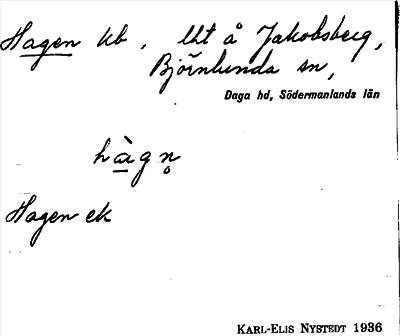 Hagen kb, lht å Jakobsberg,
Björnlunda sn,
Daga hd, Södermanlands län
hàgn̥
Hagen ek
KARL-ELIS NYSTEDT 1936